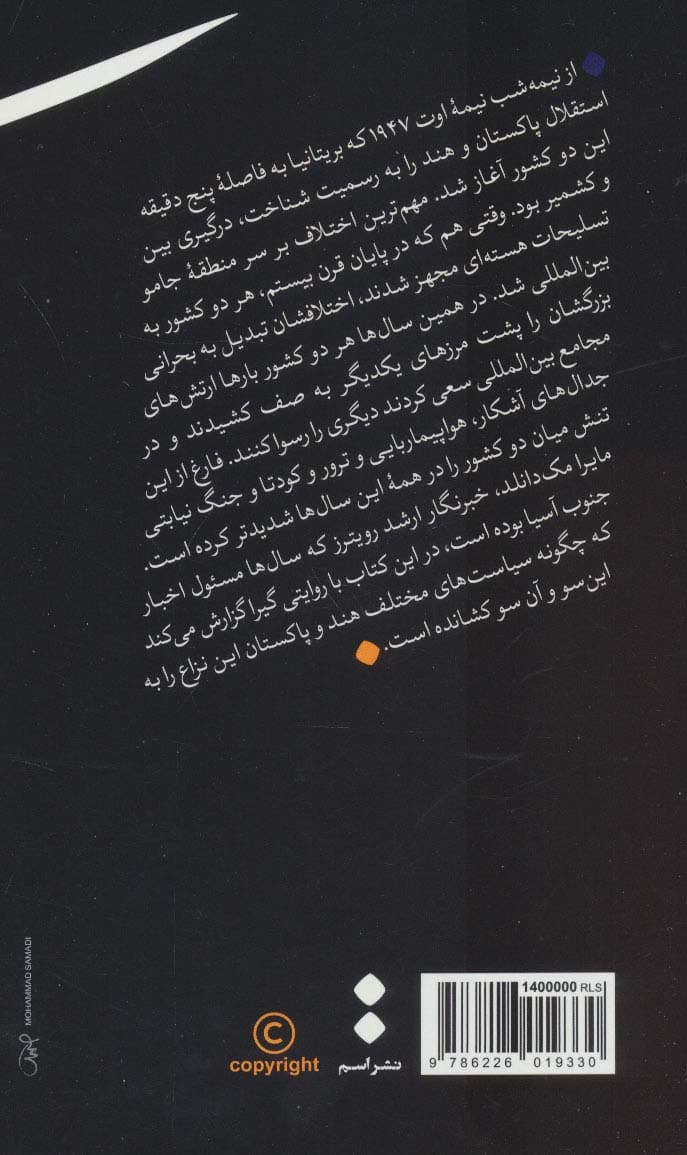 از نیمه‌شب نیمهٔ اوت ۱۹۴۷ که بریتانیا به فاصلهٔ پنج دقیقه
استقلال پاکستان و هند را به رسمیت شناخت، درگیری بین
این دو کشور آغاز شد. مهم‌ترین اختلاف بر سر منطقهٔ جامو
و کشمیر بود. وقتی هم که در پایان قرن بیستم، هر دو کشور به
تسلیحات هسته‌ای مجهز شدند، اختلافشان تبدیل به بحرانی
بین‌المللی شد. در همین سال‌ها هر دو کشور بارها ارتش‌های
بزرگشان را پشت مرزهای یکدیگر به صف کشیدند و در
مجامع بین‌المللی سعی کردند دیگری را رسوا کنند. فارغ از این
جدال‌های آشکار، هواپیماربایی و ترور و کودتا و جنگ نیابتی
تنش میان دو کشور را در همهٔ این سال‌ها شدیدتر کرده است.
مایرا مک‌دانلد، خبرنگار ارشد رویترز که سال‌ها مسئول اخبار
جنوب آسیا بوده است، در این کتاب با روایتی گیرا گزارش می‌کند
که چگونه سیاست‌های مختلف هند و پاکستان این نزاع را به
این سو و آن سو کشانده است.
MOHAMMAD SAMADI
1400000 RLS
9 786226 019330
نشر اسم
©
copyright